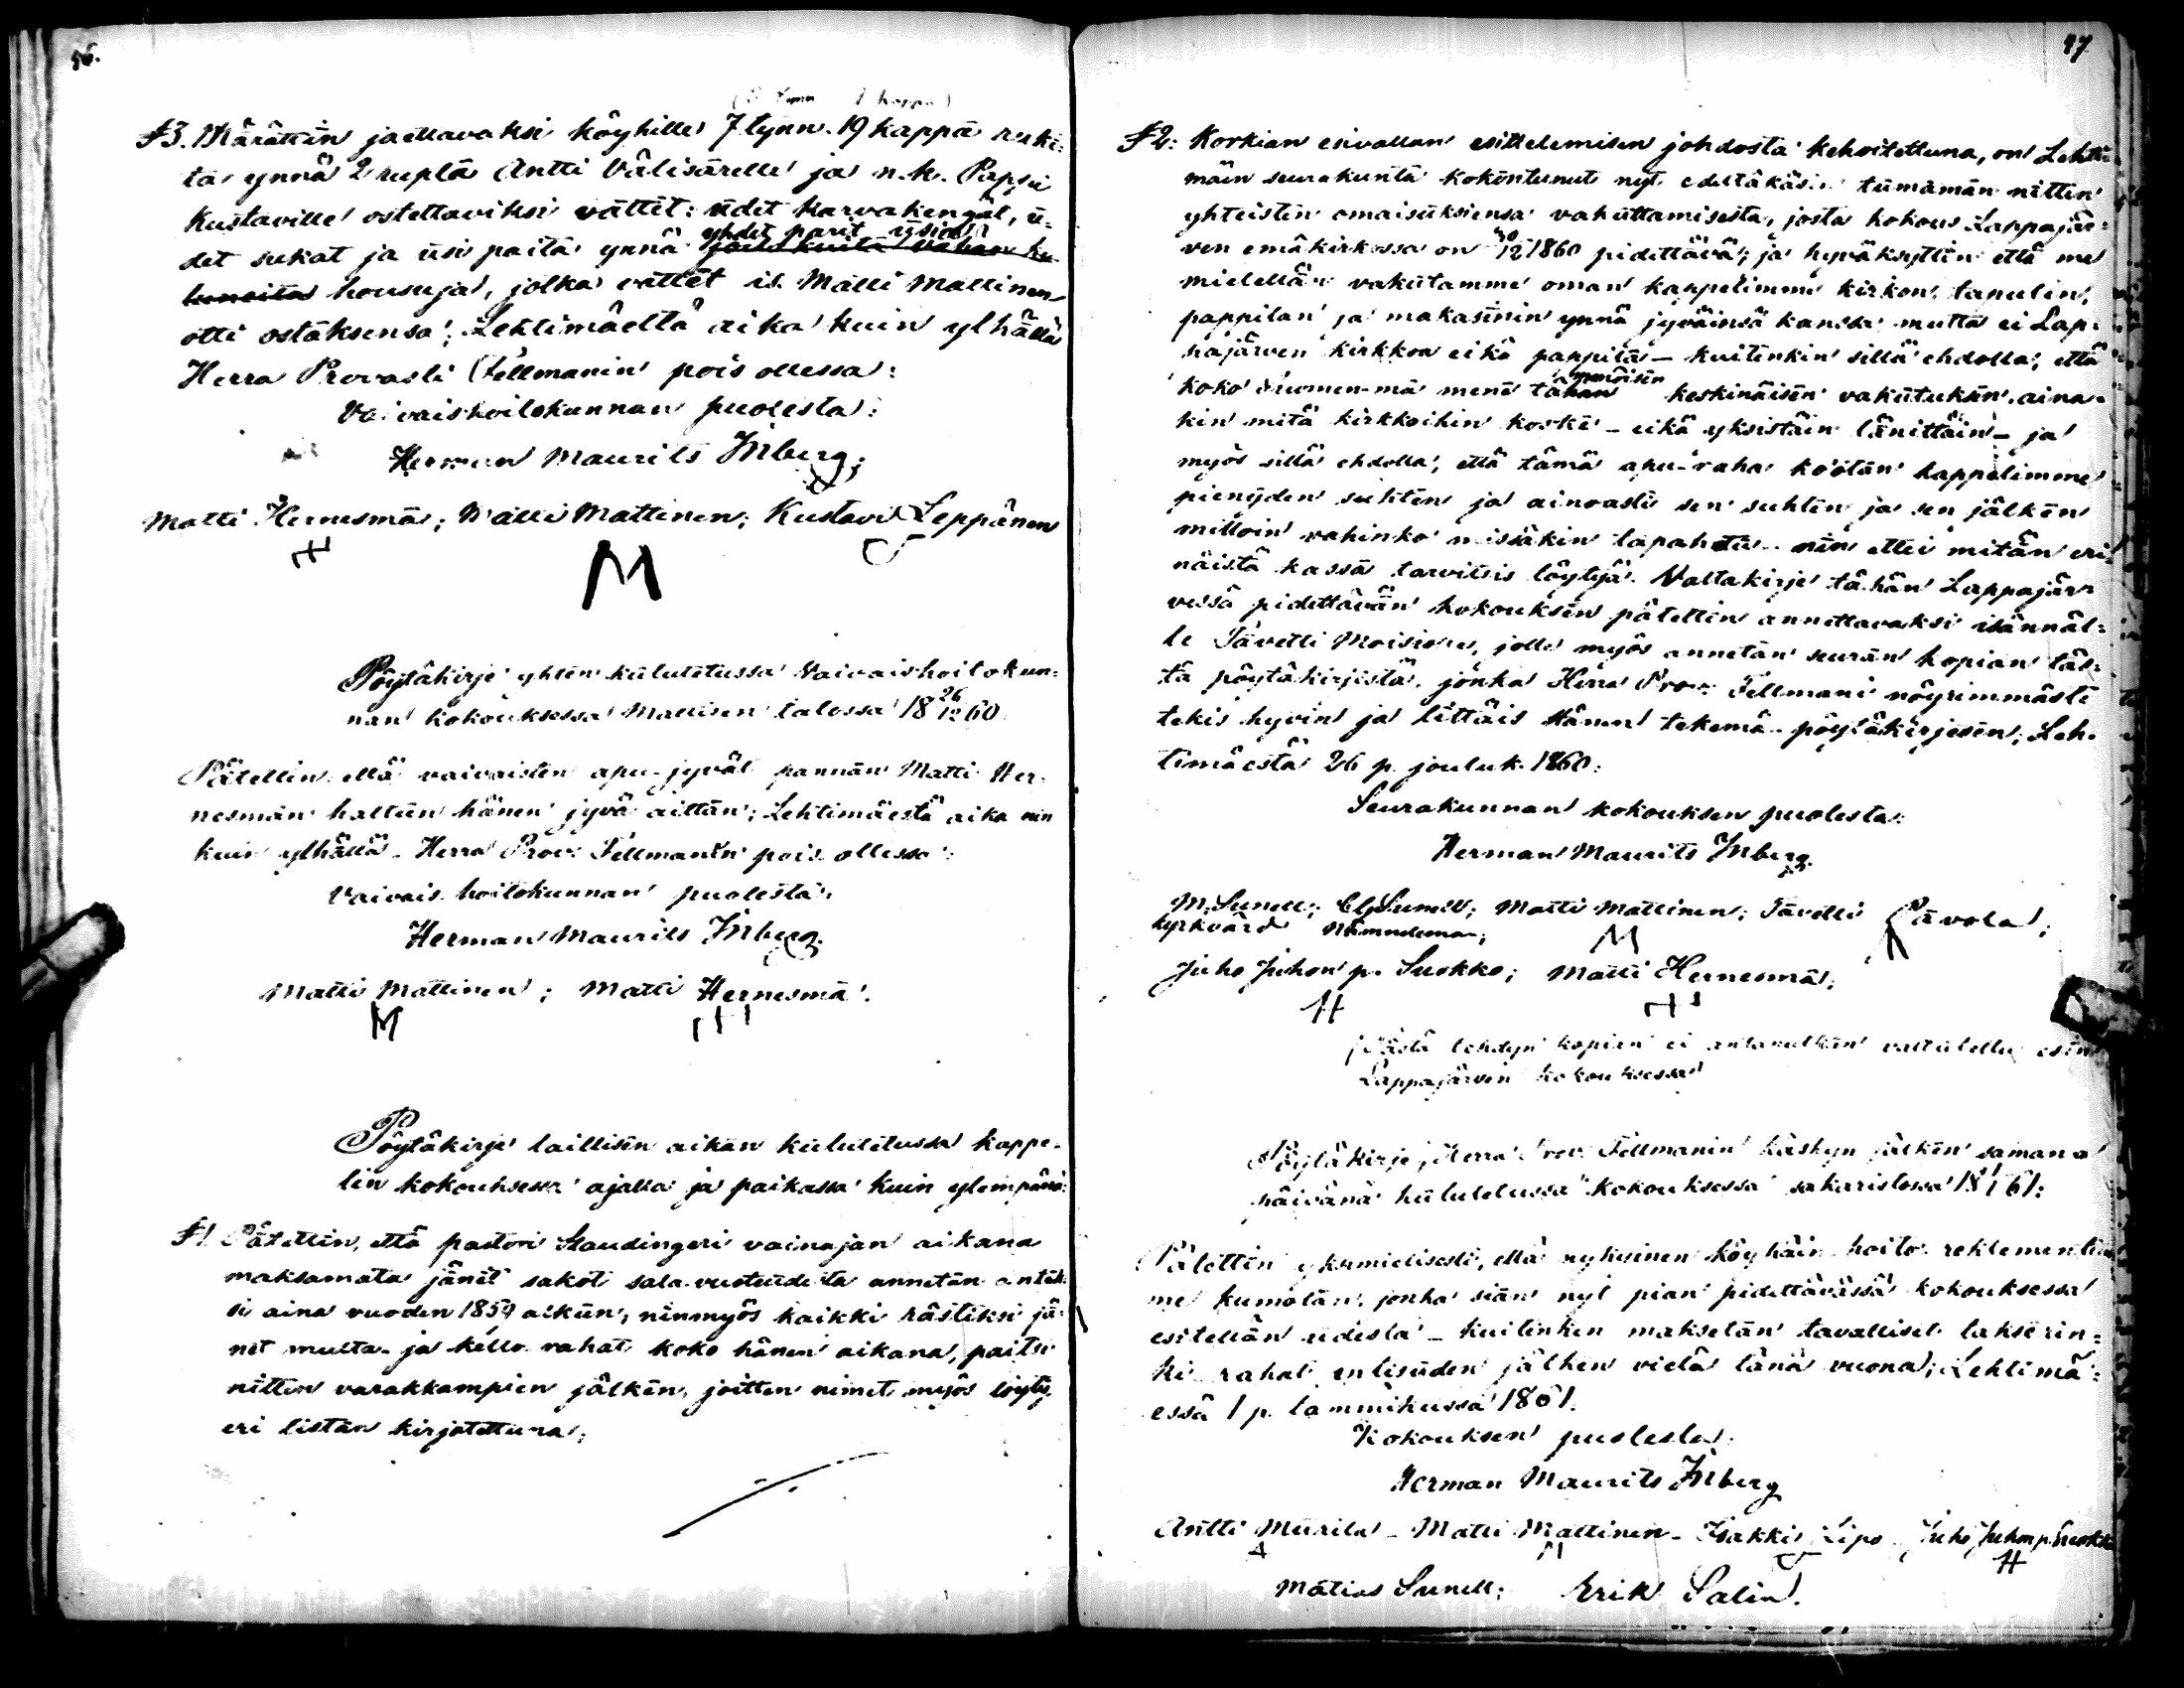 56.
§3. Märättin jaettavaksi köyhille 7 tynn. 19 kappa ruki:
ta ynnä 2 rupla Antti Välisärelle ja n.k. Papsu
Kustaville ostettaviksi vättet: üdet karvakengät, ü-
yhdet parit
det sukat ja üsi paita ynnä
housuja, jotka vättet is. Matti Mattinen
otti ostaksensa; Lehtimäeltä aika kuin ylhällä
Herra Provasti Fellmanin pois ollessa:
Vaivaishoitokunnan puolesta:
Herman Maurits Inberg;
Matti Hernesmä; Matti Mattinen; Kustavi Leppänen
M
Pöytäkirje yhten kulutetussa Vaivaishoitokun-
nan kokouksessa Mattisen talossa 18 26/12 60
Pätettin että vaivaisten apu-jyvät pannan Matti Her-
nesmän haltun hänen jyvä aittan; Lehtimäestä aika nin
kuin ylhällä - Herra Prov: Fellmanin pois ollessa:
Vaivais hoitokunnan puolesta:
Herman Maurits Inberg.
Matti Mattinen; Matti Hernesmä.
M
Pöytäkirje laillisen aikan kulutetussa kappe-
lin kokouksessa ajalla ja paikassa kuin ylempänä:
§1. Pätettin, että pastori Staudingeri vainajan aikana
maksamata jänet sakot sala-vuoteudesta annetan antek-
si aina vuoden 1859 alkün; ninmyös kaikki rästiksi jä-
net multa- ja kello-rahat koko hänen aikana, paitsi
nitten varakkampien jälken, joitten nimet myös löyty
eri listan kirjotettuna;
97
§2: Korkian esivallan esittelemisen johdosta kehoitettuna, on Lehti-
mäin seurakunta kokontunut nyt edeltäkäsin tümämän nitten
yhteisten omaisuksiensa vakuttamisesta, josta kokous Lappajär-
ven emäkirkossa on 30/12 1860 pidettävä; ja hyväksyttin että me
mielellän vakutamme oman kappelimme kirkon, tapulin,
pappilan ja makasinin ynnä jyväinsä kanssa mutta ei Lap-
pajärven kirkkoa eikä pappila - kuitenkin sillä ehdolla, että
koko Suomen-ma mene tähän keskinäisen vakutuksen, aina-
kin mitä kirkkoihin koske - eikä yksistäin länittäin - ja
myös sillä ehdolla, että tämä apu-raha ko'otan kappelimme
pienyden suhten ja ainoasti sen suhten ja sen jälken
milloin vahinko missäkin tapahtu - nin ettei mitän eri-
näistä kassa tarvitsis löytyä. Valtakirje tähän Lappajär-
vessä pidettävän kokouksen pätettin annettavaksi isännäl-
le Tävetti Moisio, jolle myös annetan seuran kopian täs-
tä pöytäkirjesta, jonka Herra Prov: Fellmani nöyrimmästi
tekis hyvin ja littäis hänen tekemä pöytäkirjesen; Leh-
timäestä 26 p. jouluk. 1860:
Seurakunnan kokouksen puolesta:
Herman Maurits Inberg.
M. Sunell; Matti Mattinen; Tävetti Pävola;
kyrkvärd Nämndeman;
M
Juho Juhon p. Suokko; Matti Hernesmä;
H
tehdyn kopian ei
Lappajärven kokouksessa
Pöytäkirje, Herra Prov: Fellmanin käskyn jälken samana
päivänä kulutetussa kokouksessa sakaristossa 18 1/1 61:
Pätettin yksimielisesti, että nykyinen köyhäin hoito reklementim-
me kumotan, jonka sian nyt pian pidettävässä kokouksessa
esitellän udesta - kuitenkin maksetan tavalliset takserin-
ki rahat entisüden jälken vielä tänä vuona; Lehtimä-
essä 1 p. tammikussa 1861.
Kokouksen puolesta:
Herman Maurits Inberg
Antti Mürila - Matti Mattinen - Isakki Lipo - Juho Juhon p. Suokko
M
H
Matias Sunell; Erik Salin.